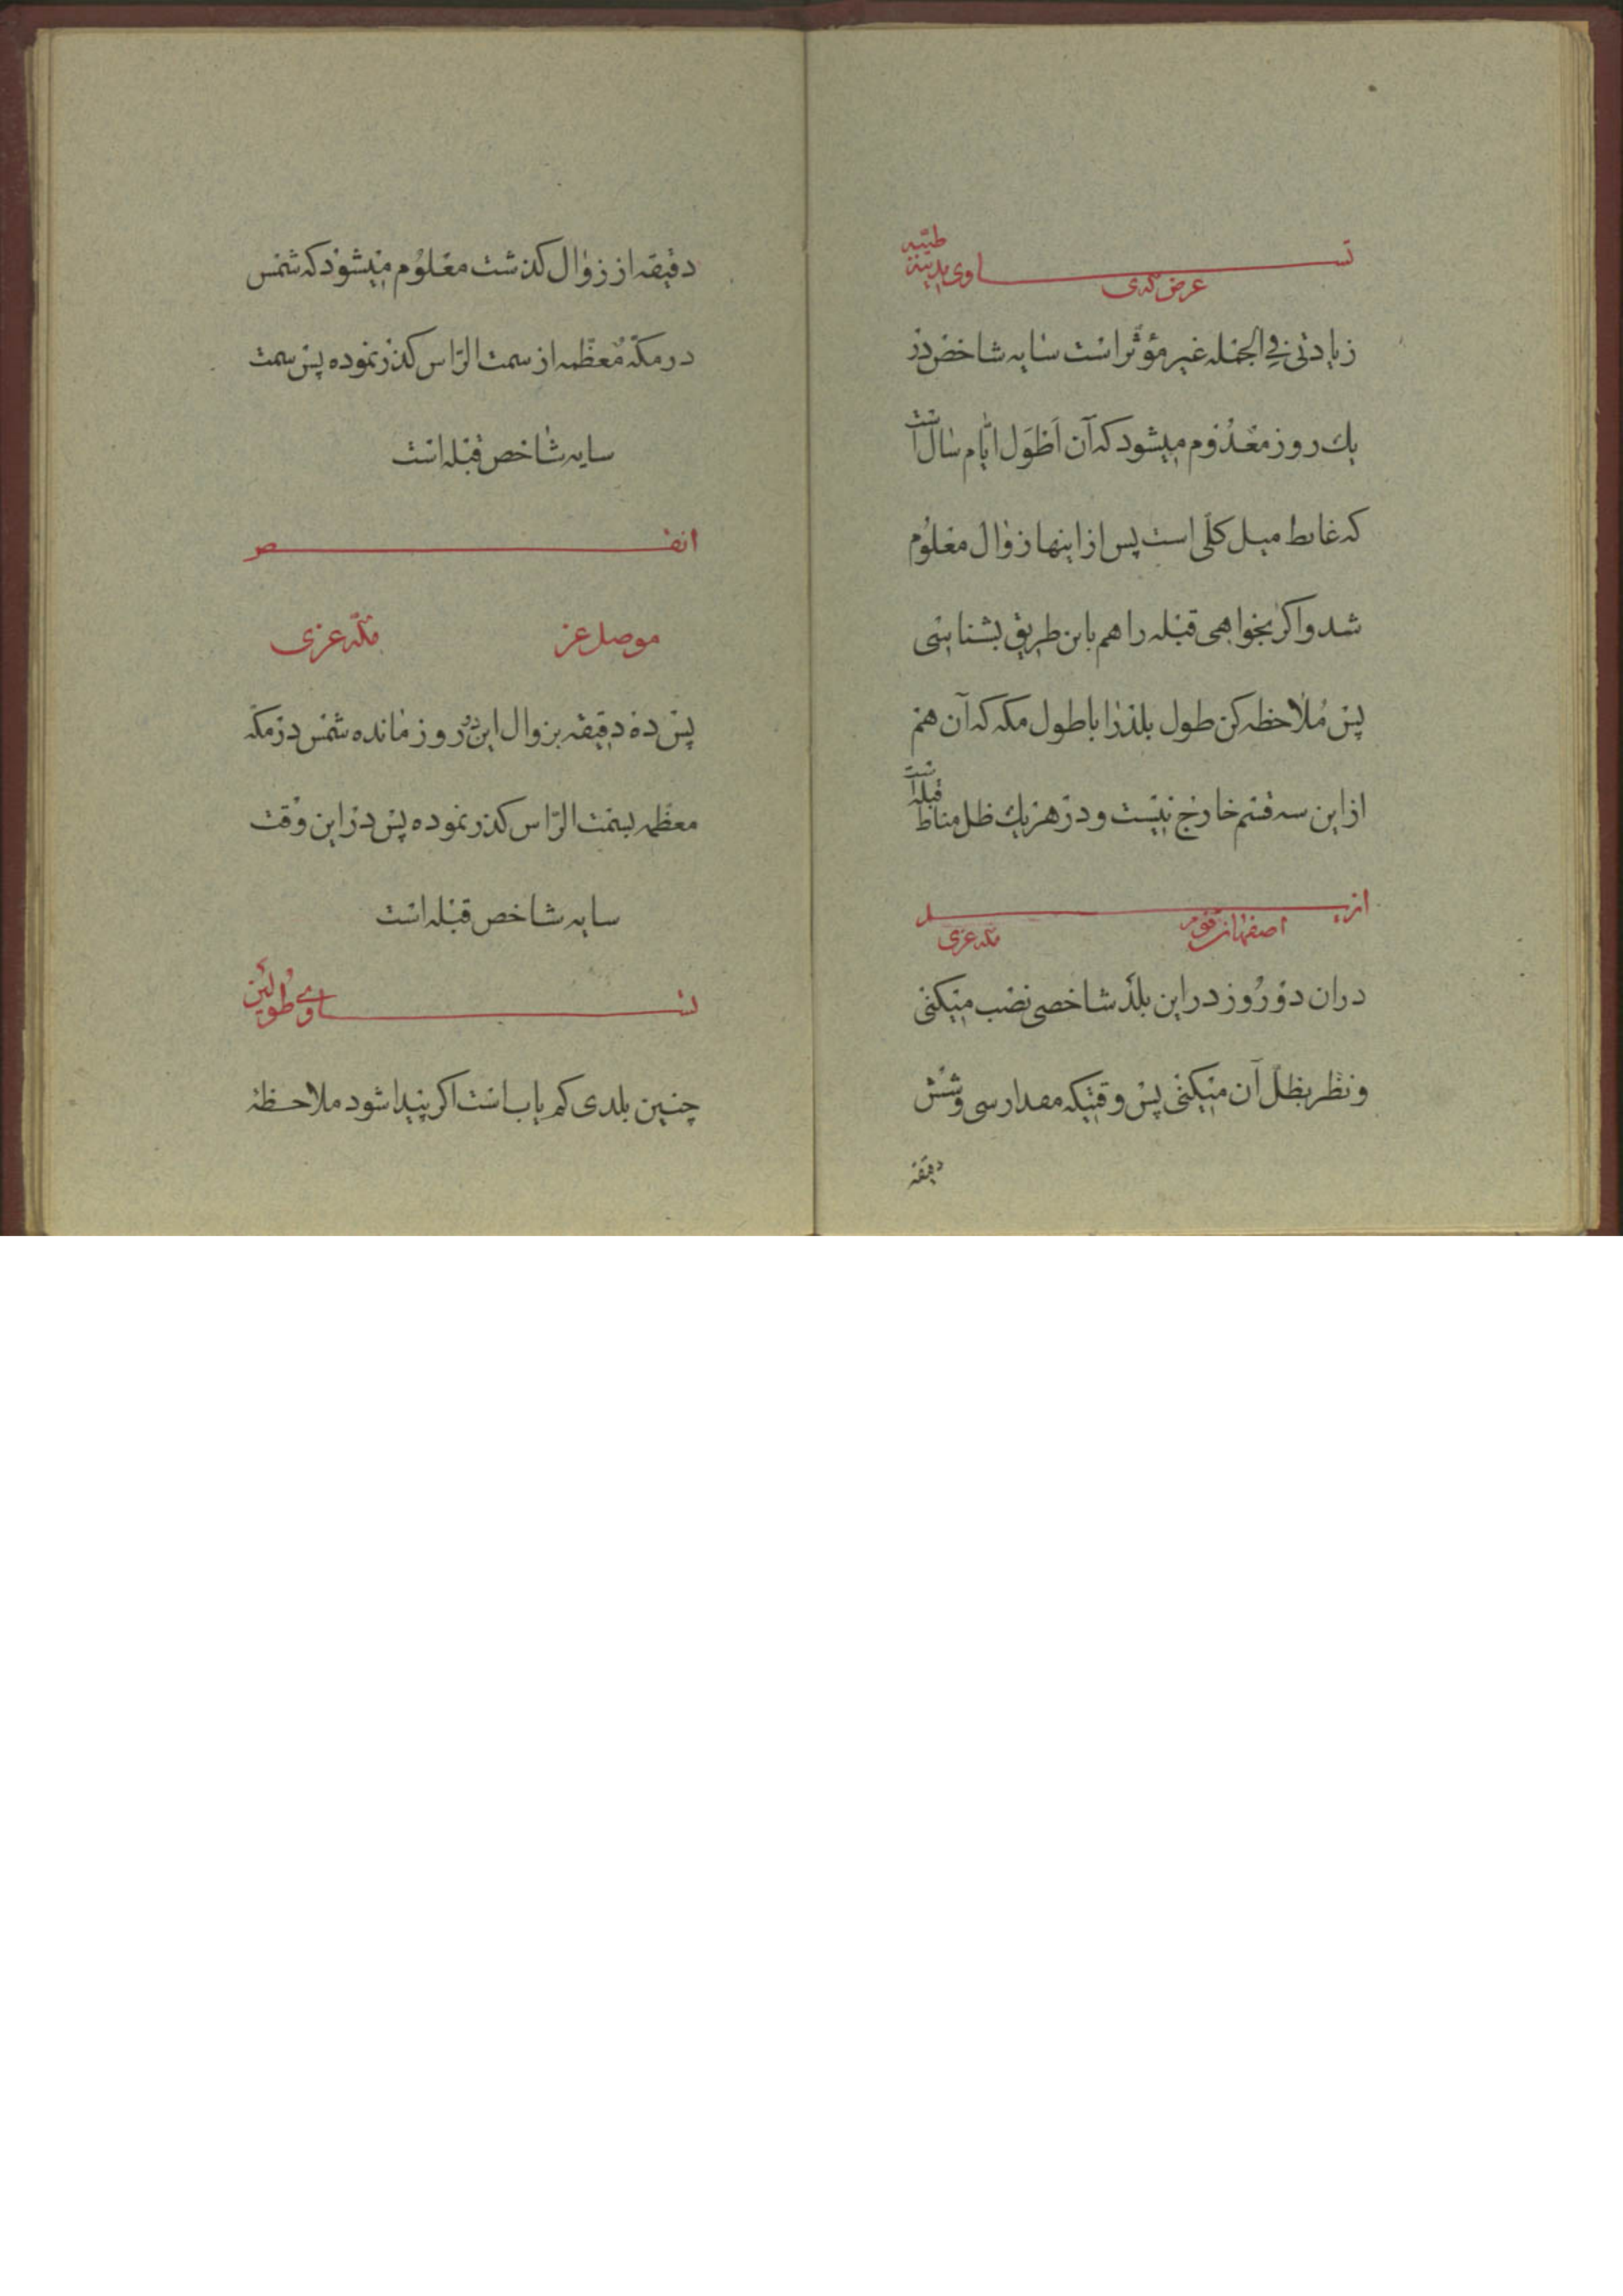 تساوی مدینه طیبه
عرض که ی
زیادتی فی الجمله غیر مؤثر است سایه شاخص در
یك روز معدوم میشود که آن اطول ایام سال است
که غایط میل کلی است پس از اینها زوال معلوم
شد واکر بخواهی قبله را هم باین طریق بشناسی
پس ملاحظه کن طول بلد را با طول مکه که آن هم
از این سه قسم خارج نیست و در هر یك ظل مناط قبله است
ازید
اصفهان مکه عزی
در ان دو روز در این بلد شاخصی نصب میکنی
و نظر بظل آن میکنی پس وقتیکه مقدار سی وشش
دقیقه
دقیقه از زوال کذشت معلوم میشود که شمس
در مکه معظمه از سمت الراس کذر نموده پس سمت
سایه شاخص قبله است
انقص
موصل عز مکه عزی
پس ده دقیقه بزوال این دو روز مانده شمس در مکه
معظمه بسمت الراس کذر نموده پس در این وقت
سایه شاخص قبله است
تساوی طولین
چنین بلدی کم یاب است اکر پیدا شود ملاحظه